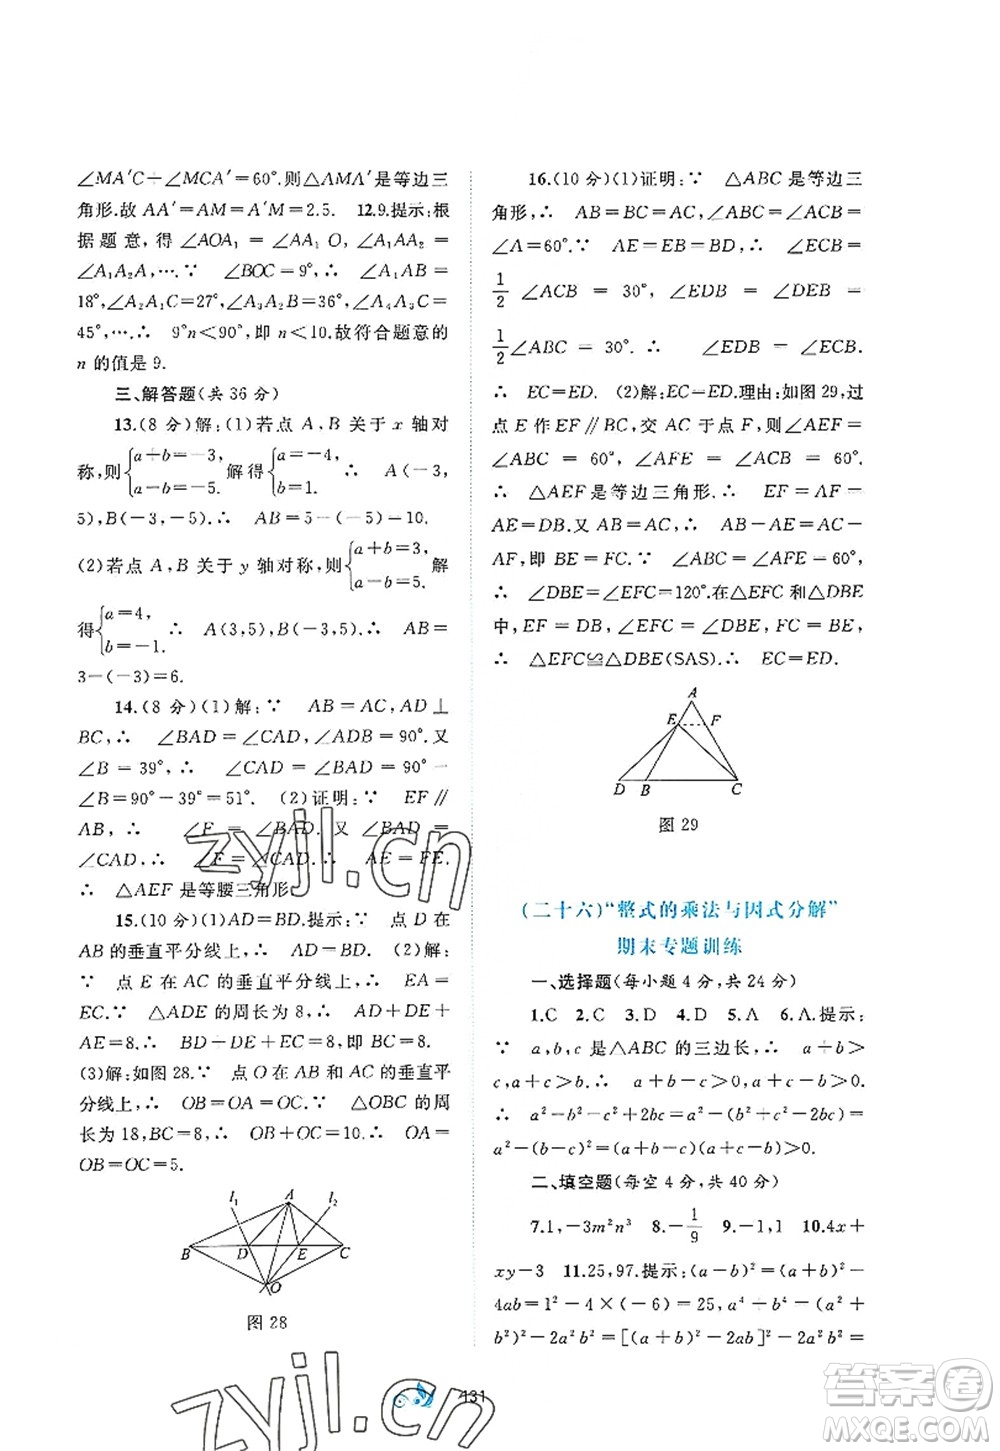 ∠MA′C+∠MCA′=60°.则△AMA′是等边三
角形.故 AA′=AM=A′M=2.5.  12.9.提示:根
据题意,得∠AOA₁=∠AA₁O,∠A₁AA₂=
∠A₁A₂A,….∵ ∠BOC=9°,∴ ∠A₁AB=
18°,∠A₂A₁C=27°,∠A₃A₂B=36°,∠A₄A₃C=
45°,….∴ 9°n<90°,即 n<10.故符合题意的
n 的值是 9.
三、解答题(共 36 分)
13.(8 分)解:(1)若点 A,B 关于 x 轴对
称,则{a+b=-3, a-b=-5. 解得{a=-4, b=1. ∴ A(-3,
5),B(-3,-5).∴ AB=5-(-5)=10.
(2)若点 A,B 关于 y 轴对称,则{a+b=3, a-b=5. 解
得{a=4, b=-1. ∴ A(3,5),B(-3,5).∴ AB=
3-(-3)=6.
14.(8 分)(1)解:∵ AB=AC,AD⊥
BC,∴ ∠BAD=∠CAD,∠ADB=90°.又
∠B=39°,∴ ∠CAD=∠BAD=90°-
∠B=90°-39°=51°. (2)证明:∵ EF∥
AB,∴ ∠F=∠BAD.又∠BAD=
∠CAD,∴ ∠F=∠CAD.∴ AE=FE.
∴ △AEF 是等腰三角形.
15.(10 分)(1)AD=BD.提示:∵ 点 D 在
AB 的垂直平分线上,∴ AD=BD. (2)解:
∵ 点 E 在 AC 的垂直平分线上,∴ EA=
EC.∵ △ADE 的周长为 8,∴ AD+DE+
AE=8.∴ BD+DE+EC=8.∴ BC=8.
(3)解:如图 28.∵ 点 O 在 AB 和 AC 的垂直平
分线上,∴ OB=OA=OC.∵ △OBC 的周
长为 18,BC=8,∴ OB+OC=10.∴ OA=
OB=OC=5.
l₁ A l₂
B D E C
O
图 28
16.(10 分)(1)证明:∵ △ABC 是等边三
角形,∴ AB=BC=AC,∠ABC=∠ACB=
∠A=60°.∵ AE=EB=BD,∴ ∠ECB=
1/2∠ACB=30°,∠EDB=∠DEB=
1/2∠ABC=30°.∴ ∠EDB=∠ECB.
∴ EC=ED. (2)解:EC=ED.理由:如图 29,过
点 E 作 EF∥BC,交 AC 于点 F,则∠AEF=
∠ABC=60°,∠AFE=∠ACB=60°.
∴ △AEF 是等边三角形.∴ EF=AF=
AE=DB.又 AB=AC,∴ AB-AE=AC-
AF,即 BE=FC.∵ ∠ABC=∠AFE=60°,
∴ ∠DBE=∠EFC=120°.在△EFC 和△DBE
中,EF=DB,∠EFC=∠DBE,FC=BE,
∴ △EFC≌△DBE(SAS).∴ EC=ED.
A
E F
D B C
图 29
(二十六)“整式的乘法与因式分解”
期末专题训练
一、选择题(每小题 4 分,共 24 分)
1.C 2.C 3.D 4.D 5.A 6.A.提示:
∵ a,b,c 是△ABC 的三边长,∴ a+b>
c,a+c>b.∴ a+b-c>0,a-b-c<0.
∴ a²-b²-c²+2bc=a²-(b²+c²-2bc)=
a²-(b-c)²=(a+b-c)(a-b+c)>0.
二、填空题(每空 4 分,共 40 分)
7.1,-3m²n³ 8.-1/9 9.-1,1 10.4x+
xy-3 11.25,97.提示:(a-b)²=(a+b)²-
4ab=1²-4×(-6)=25,a⁴+b⁴=(a²+
b²)²-2a²b²=[(a+b)²-2ab]²-2a²b²=
131
zyjl.cn
zyjl.cn
答案圈
MXQE.COM